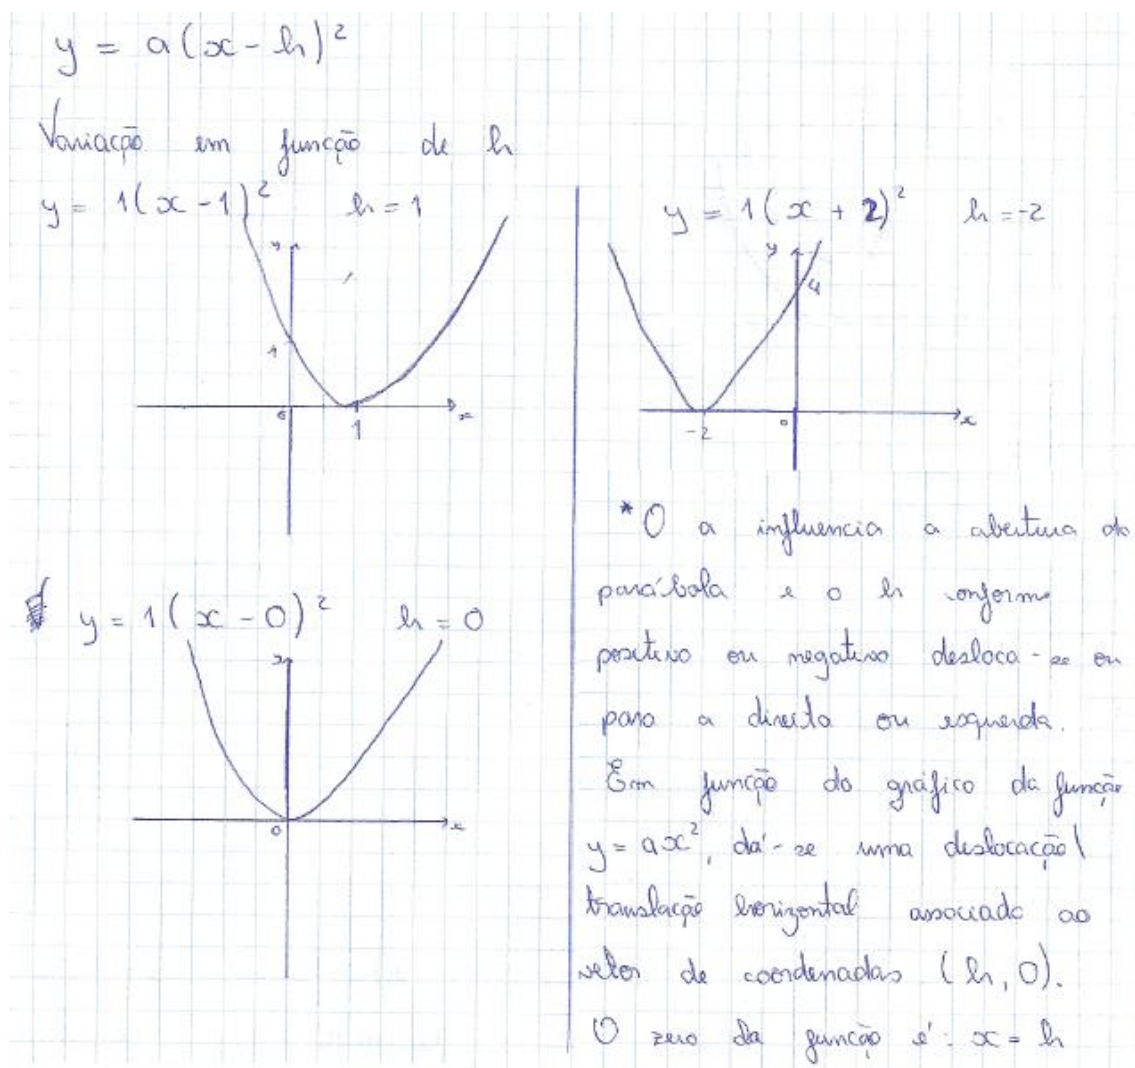 y = a(x - h)²
Variação em função de h
y = 1(x - 1)² h = 1
y
1
0
1
x
y = 1(x + 2)² h = -2
y
4
-2
0
x
y = 1(x - 0)² h = 0
0
x
* O a influencia a abertura da
parábola e o h conforme
positivo ou negativo desloca-se ou
para a direita ou esquerda.
Em função do gráfico da função
y = ax², dá-se uma deslocação\
translação horizontal associado ao
vetor de coordenadas (h, 0).
O zero da função é: x = h